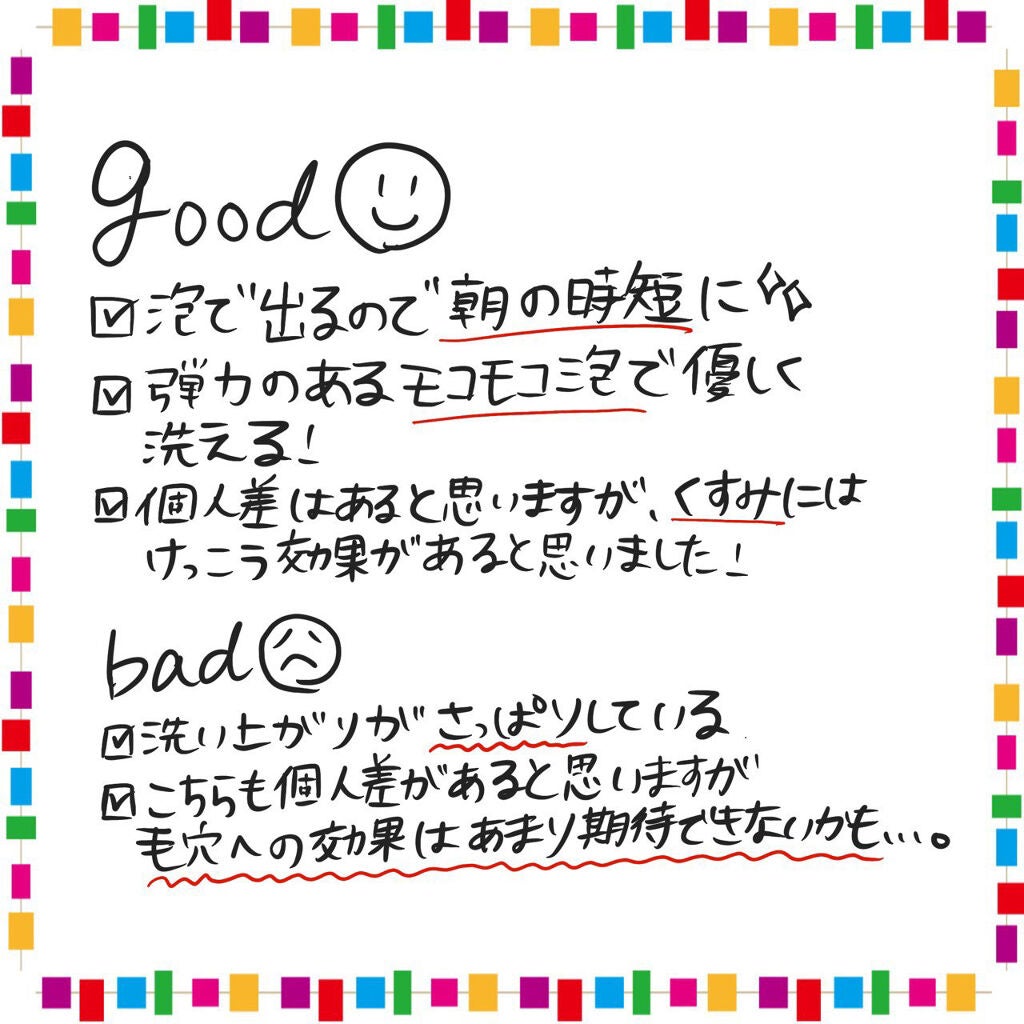 good
☑泡で出るので朝の時短に
☑弾力のあるモコモコ泡で優しく
洗える!
☑個人差はあると思いますが、くすみには
けっこう効果があると思いました!
bad
☑洗い上がりがさっぱりしている
☑こちらも個人差があると思いますが
毛穴への効果はあまり期待できないかも…。